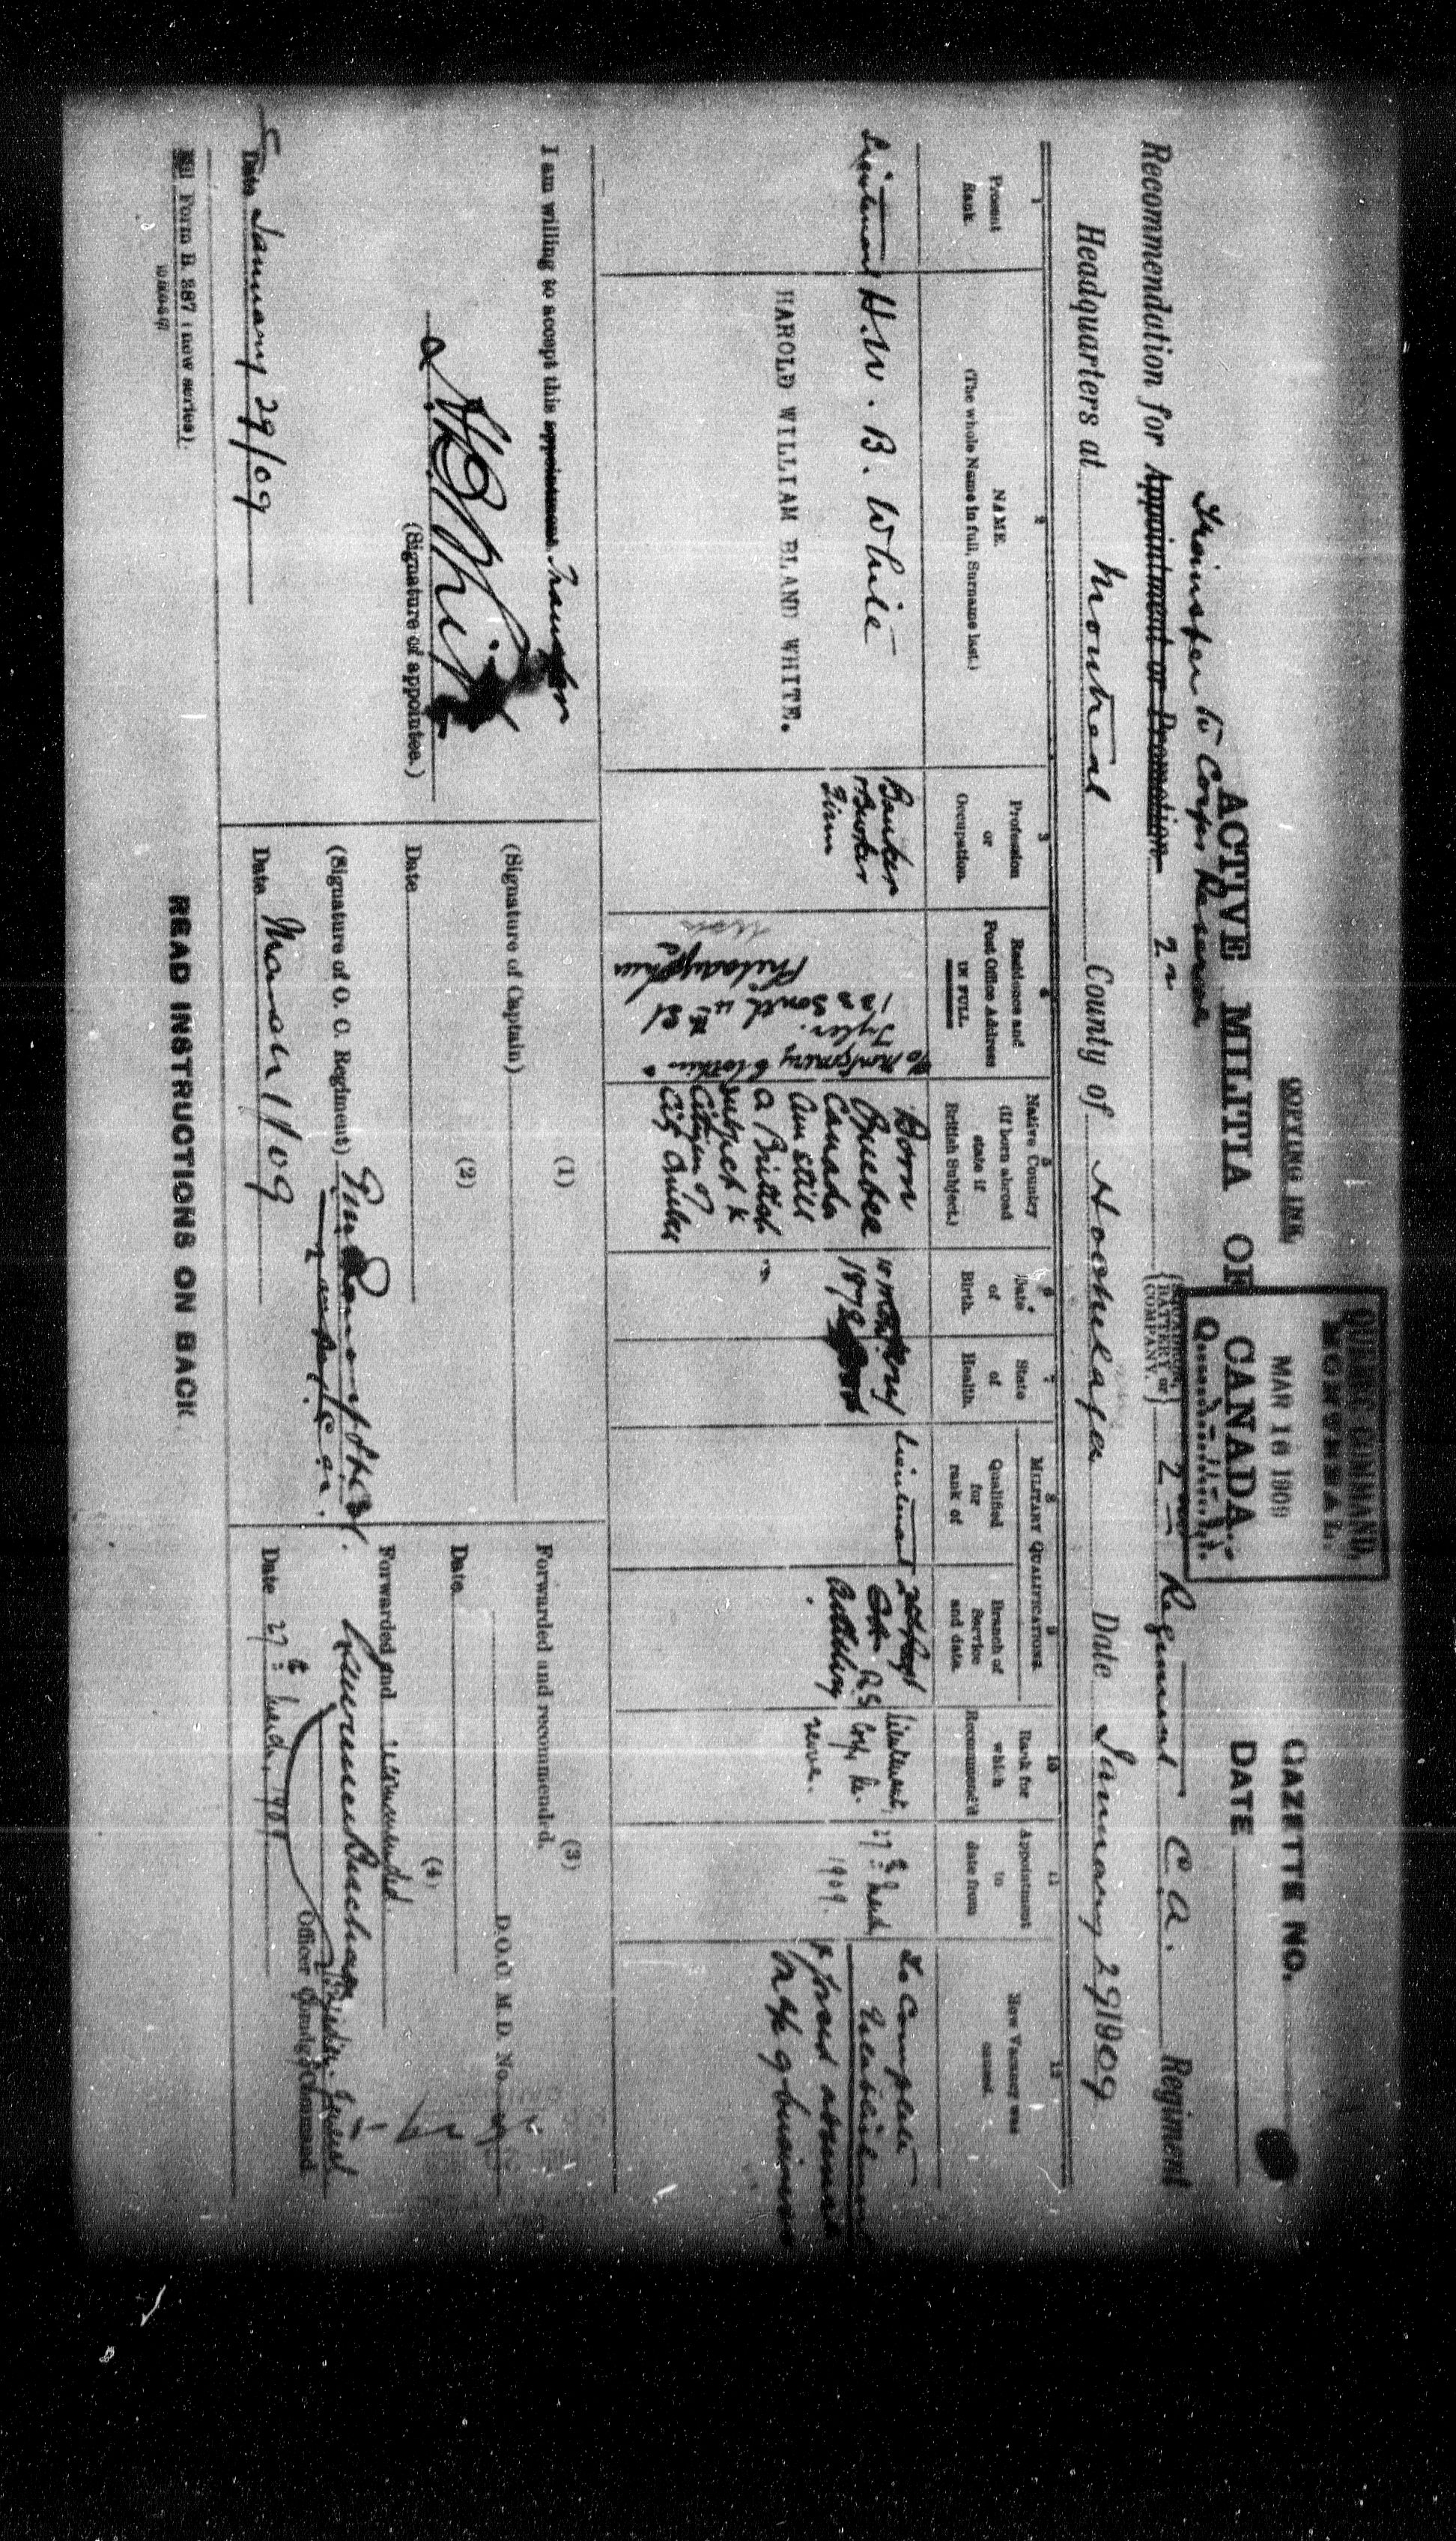 COPYING INK
QUEBEC COMMAND,
MAR 16 1909
MONTREAL.
GAZETTE NO.
DATE
ACTIVE MILITIA OF CANADA.
Transfer to Corps Reserve
Recommendation for Appointment or Promotion
{SQUADRON, BATTERY or COMPANY.} 2nd Regiment C.A. Regiment
Headquarters at Montreal County of Hochelaga Date January 29 1909
1
Present
Rank.
2
NAME.
(The whole Name in full, Surname last.)
3
Profession
or
Occupation.
4
Residence and
Post Office Address
IN FULL.
5
Native Country
(If born abroad
state if
British Subject.)
6
Date
of
Birth.
7
State
of
Health.
MILITARY QUALIFICATIONS.
8
Qualified
for
rank of
9
Branch of
Service
and date.
10
Rank for
which
Recommend'd
11
Appointment
to
date from
12
How Vacancy was
caused.
Lieutenant
H. W. B. White
HAROLD WILLIAM BLAND WHITE.
Banker
& Broker
Firm
c/o Montgomery Clothier &
Tyler.
122 South 4th St
Philadelphia
Born
Quebec
Canada
Am still
a British
subject &
Citizen of
City Quebec
1872
Lieutenant
RS
Artillery
Lieutenant,
Corps Re-
serve.
27th March,
1909.
To Complete
Establishment
& forced absence
on a/c of business
I am willing to accept this appointment. Transfer
(Signature of appointee.)
Date January 29/09
(1)
(Signature of Captain)
(2)
Date
(Signature of O. C. Regiment)
Date March 1/09
(3)
Forwarded and recommended.
D.O.C. M.D. No.
Date
(4)
Forwarded and recommended.
Laurence Buchan
Officer Comdg. Command.
Date 27th March, 1909
Form B. 387 (new series)
READ INSTRUCTIONS ON BACK.